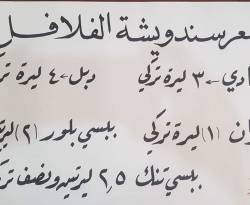 سعر سندويشة الفلافل
عادي ← ٣ ليرة تركي دبل ← ٤ ليرة
(١) ليرة تركي ببسي بلور (٢) ليرة
ببسي تنك ٢,٥ ليرتين ونصف